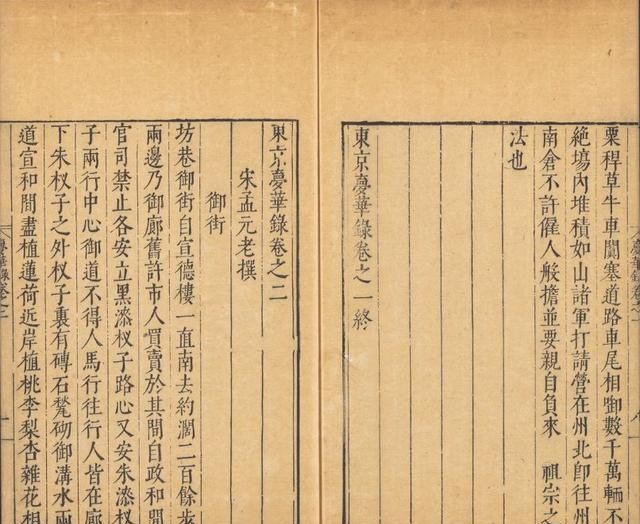 粟稈草牛車闐塞道路車尾相啣數千萬輛不
絕塲內堆積如山諸軍打請營在州北卽往州
南倉不許僱人般擔並要親自負來　祖宗之
法也
東京夢華錄卷之一終
東京夢華錄卷之二
宋孟元老撰
御街
坊巷御街自宣德樓一直南去約濶二百餘步
兩邊乃御廊舊許市人買賣於其間自政和間
官司禁止各安立黑漆杈子路心又安朱漆杈
子兩行中心御道不得人馬行往行人皆在廊
下朱杈子之外杈子裏有磚石甃砌御溝水兩
道宣和間盡植蓮荷近岸植桃李梨杏雜花相